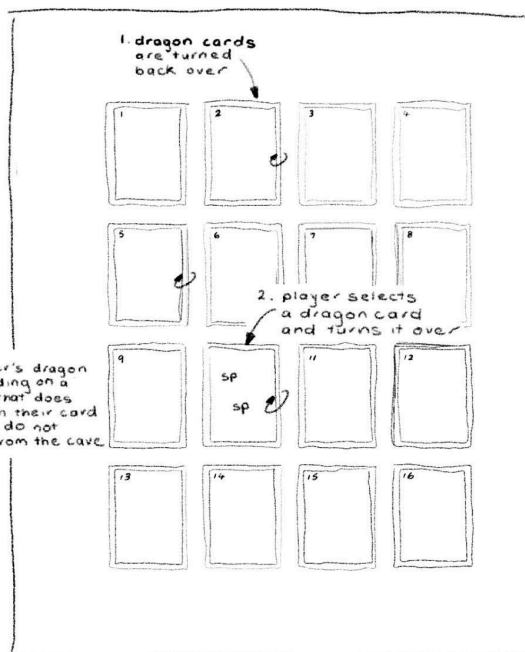 1. dragon cards
are turned
back over
1 2 3 4
5 6 7 8
2. player selects
a dragon card
and turns it over
9 10 11 12
sp
sp
dragon
on a
does
their card
do not
from the cave
13 14 15 16